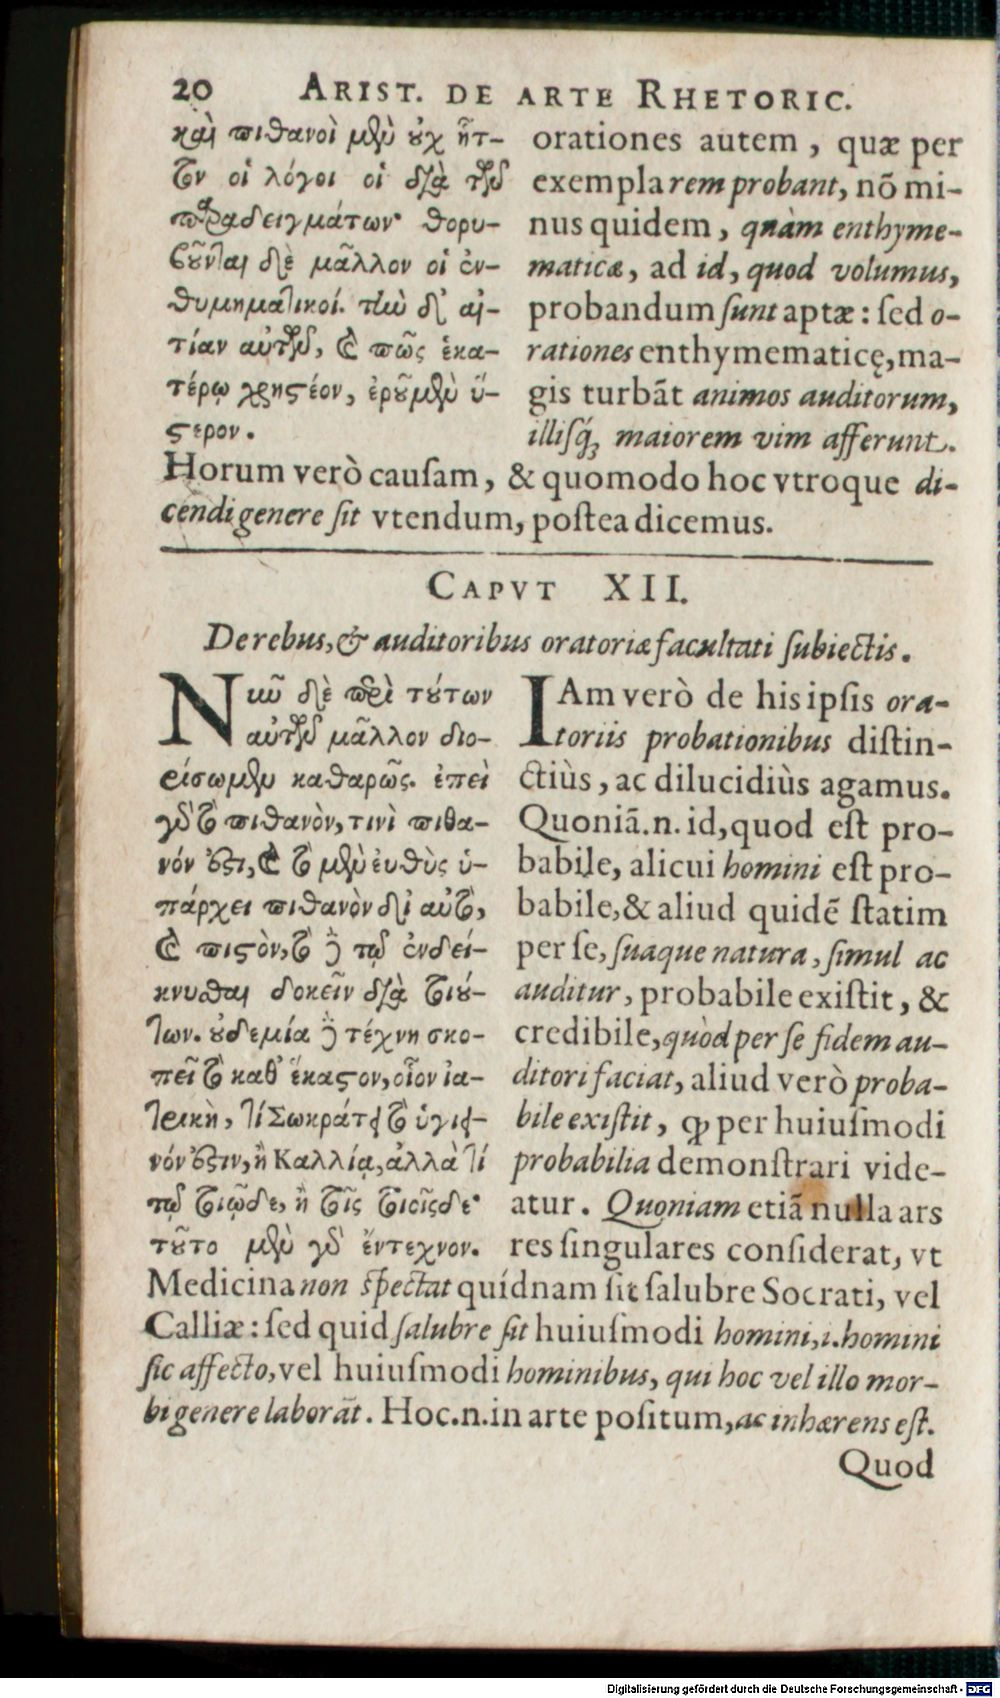 20 ARIST. DE ARTE RHETORIC.
καὶ πιθανοὶ μὲν οὐχ ἧτ-
τον οἱ λόγοι οἱ διὰ τῶν
παραδειγμάτων· θορυ-
βοῦνται δὲ μᾶλλον οἱ ἐν-
θυμηματικοί. τὴν δ' αἰ-
τίαν αὐτῶν, καὶ πῶς ἑκα-
τέρῳ χρηστέον, ἐροῦμεν ὕ-
στερον.
orationes autem, quæ per
exempla rem probant, nō mi-
nus quidem, quàm enthyme-
maticæ, ad id, quod volumus,
probandum ſunt aptæ: ſed o-
rationes enthymematicę, ma-
gis turbāt animos auditorum,
illiſq́ꝫ maiorem vim afferunt.
Horum verò cauſam, & quomodo hoc vtroque di-
cendi genere ſit vtendum, poſtea dicemus.
CAPVT XII.
De rebus, & auditoribus oratoriæ facultati ſubiectis.
Νῦν δὲ περὶ τούτων
αὐτῶν μᾶλλον διο-
είσωμεν καθαρῶς. ἐπεὶ
γὰρ τὸ πιθανὸν, τινὶ πιθα-
νόν ἐστι, καὶ τὸ μὲν εὐθὺς ὑ-
πάρχει πιθανὸν δι' αὑτὸ,
καὶ πιστὸν, τὸ δὲ τῷ ἐνδεί-
κνυσθαι δοκεῖν διὰ τοιού-
των. οὐδεμία δὲ τέχνη σκο-
πεῖ τὸ καθ' ἕκαστον, οἷον ἰα-
τρικὴ, τί Σωκράτει τὸ ὑγιει-
νόν ἐστιν, ἢ Καλλίᾳ, ἀλλὰ τί
τῷ τοιῷδε, ἢ τοῖς τοιοῖσδε·
τοῦτο μὲν γὰρ ἔντεχνον.
IAm verò de his ipſis ora-
toriis probationibus diſtin-
ctiùs, ac dilucidiùs agamus.
Quoniā.n. id, quod eſt pro-
babile, alicui homini eſt pro-
babile, & aliud quidē ſtatim
per ſe, ſuaque natura, ſimul ac
auditur, probabile exiſtit, &
credibile, quòd per ſe fidem au-
ditori faciat, aliud verò proba-
bile exiſtit, ꝙ per huiuſmodi
probabilia demonſtrari vide-
atur. Quoniam etiā nulla ars
res ſingulares conſiderat, vt
Medicina non ſpectat quídnam ſit ſalubre Socrati, vel
Calliæ: ſed quid ſalubre ſit huiuſmodi homini, i. homini
ſic affecto, vel huiuſmodi hominibus, qui hoc vel illo mor-
bi genere laborāt. Hoc.n. in arte poſitum, ac inhærens eſt.
Quod
Digitalisierung gefördert durch die Deutsche Forschungsgemeinschaft - DFG